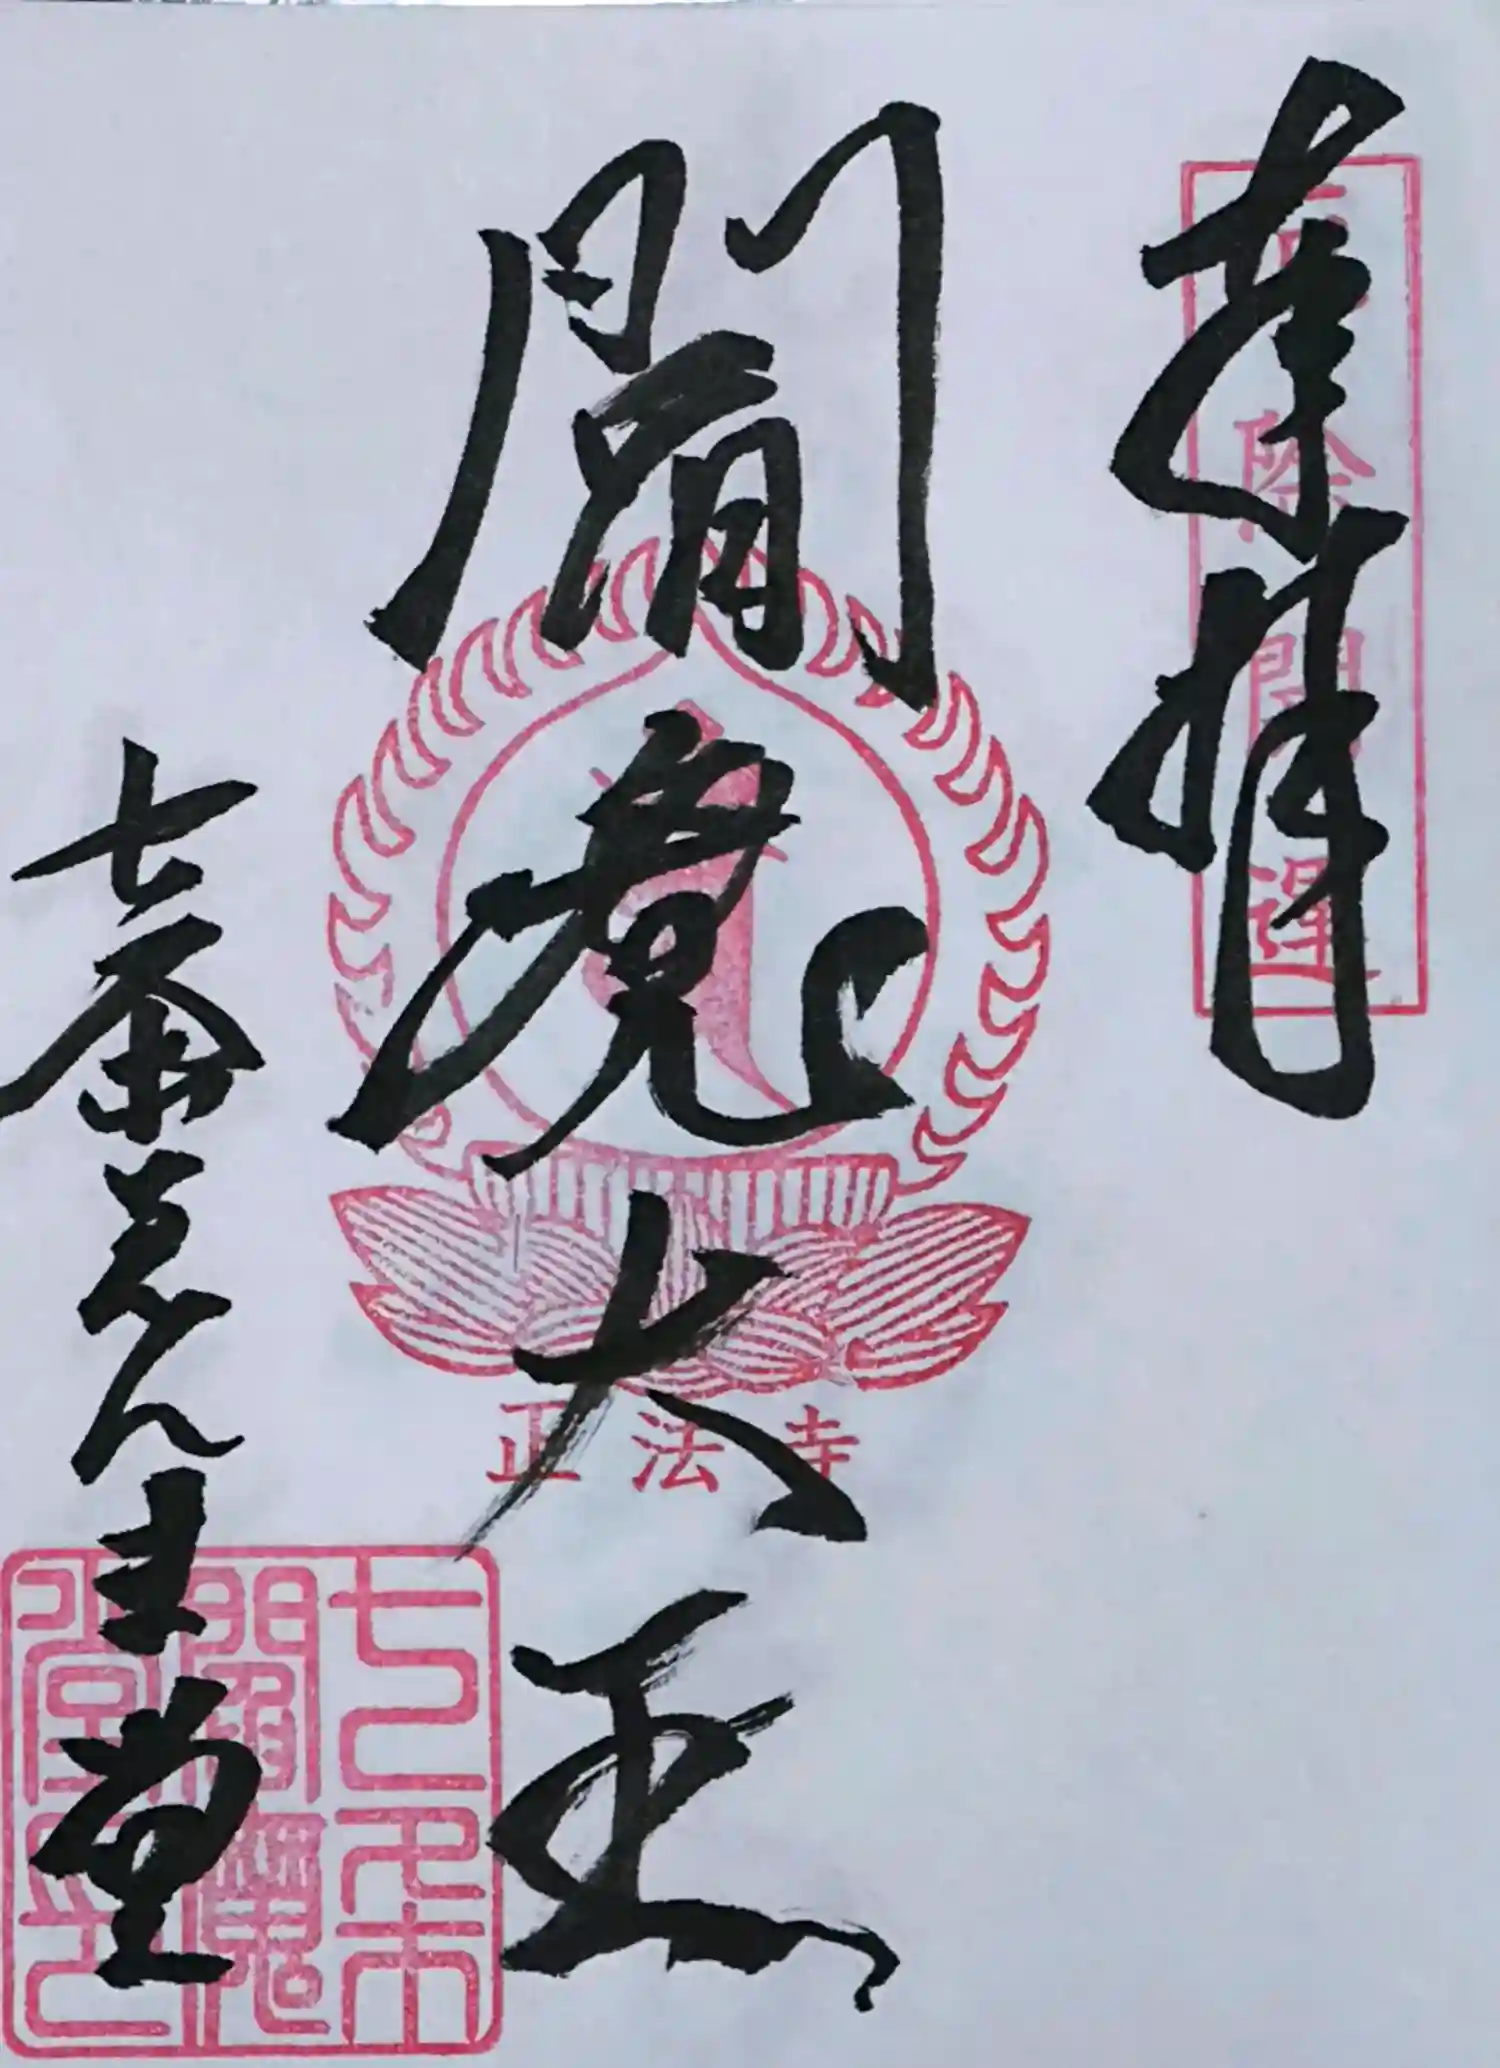 奉拝
除
開運
閻魔大王
正法寺
七条えんま堂
七条
閻魔
堂印